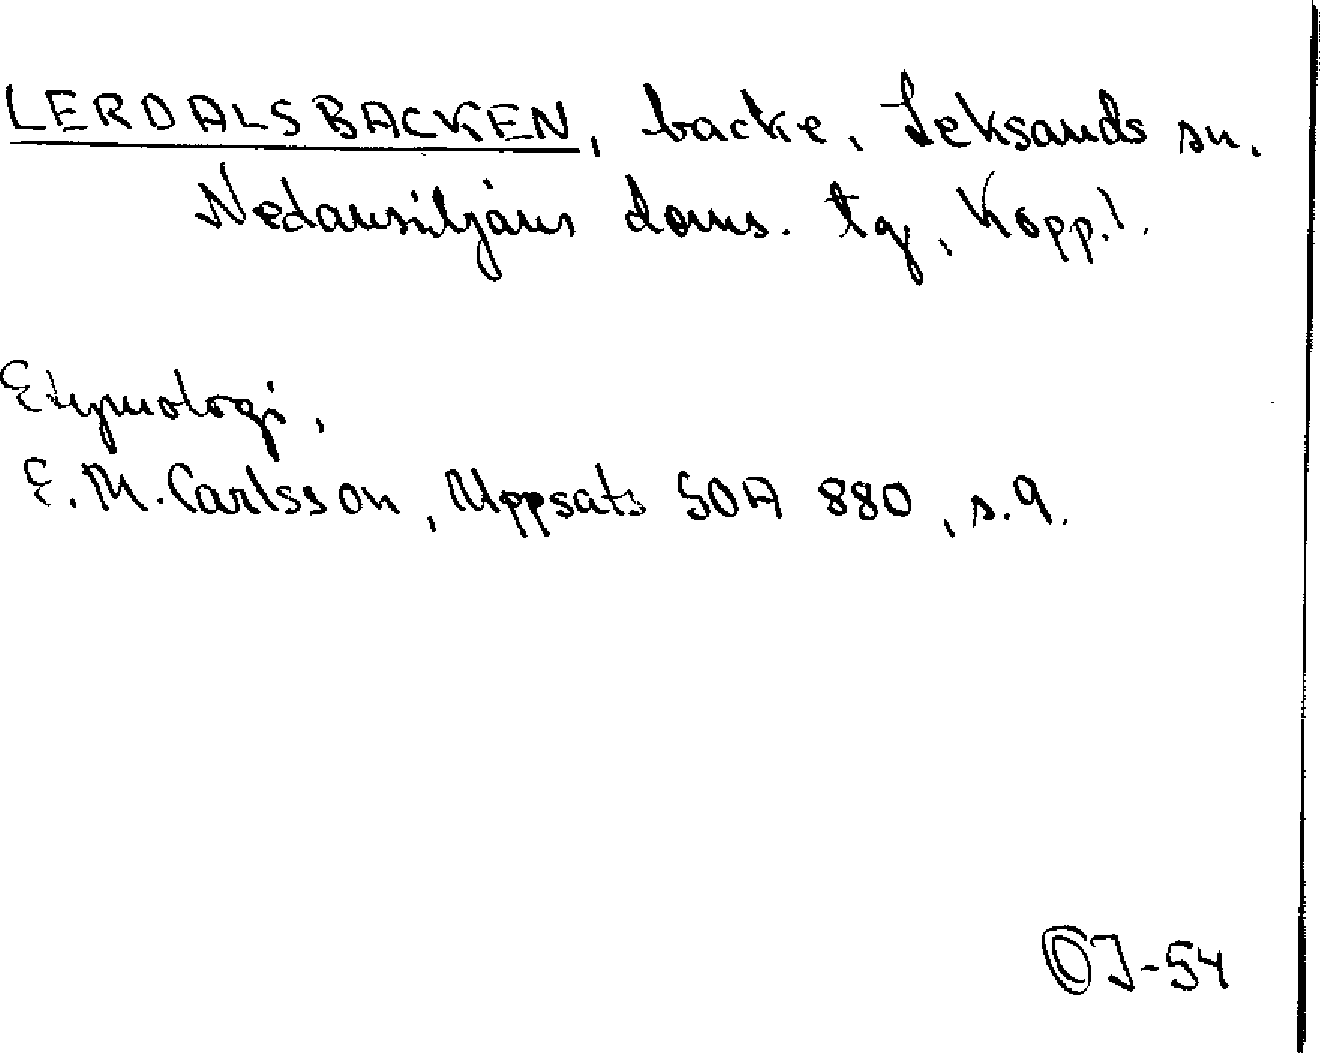 LERDALSBACKEN, backe, Leksands sn.
Nedansiljans doms. tg, Kopp.l.
Etymologi,
E.M. Carlsson, Uppsats SOA 880, s.9.
OJ-54